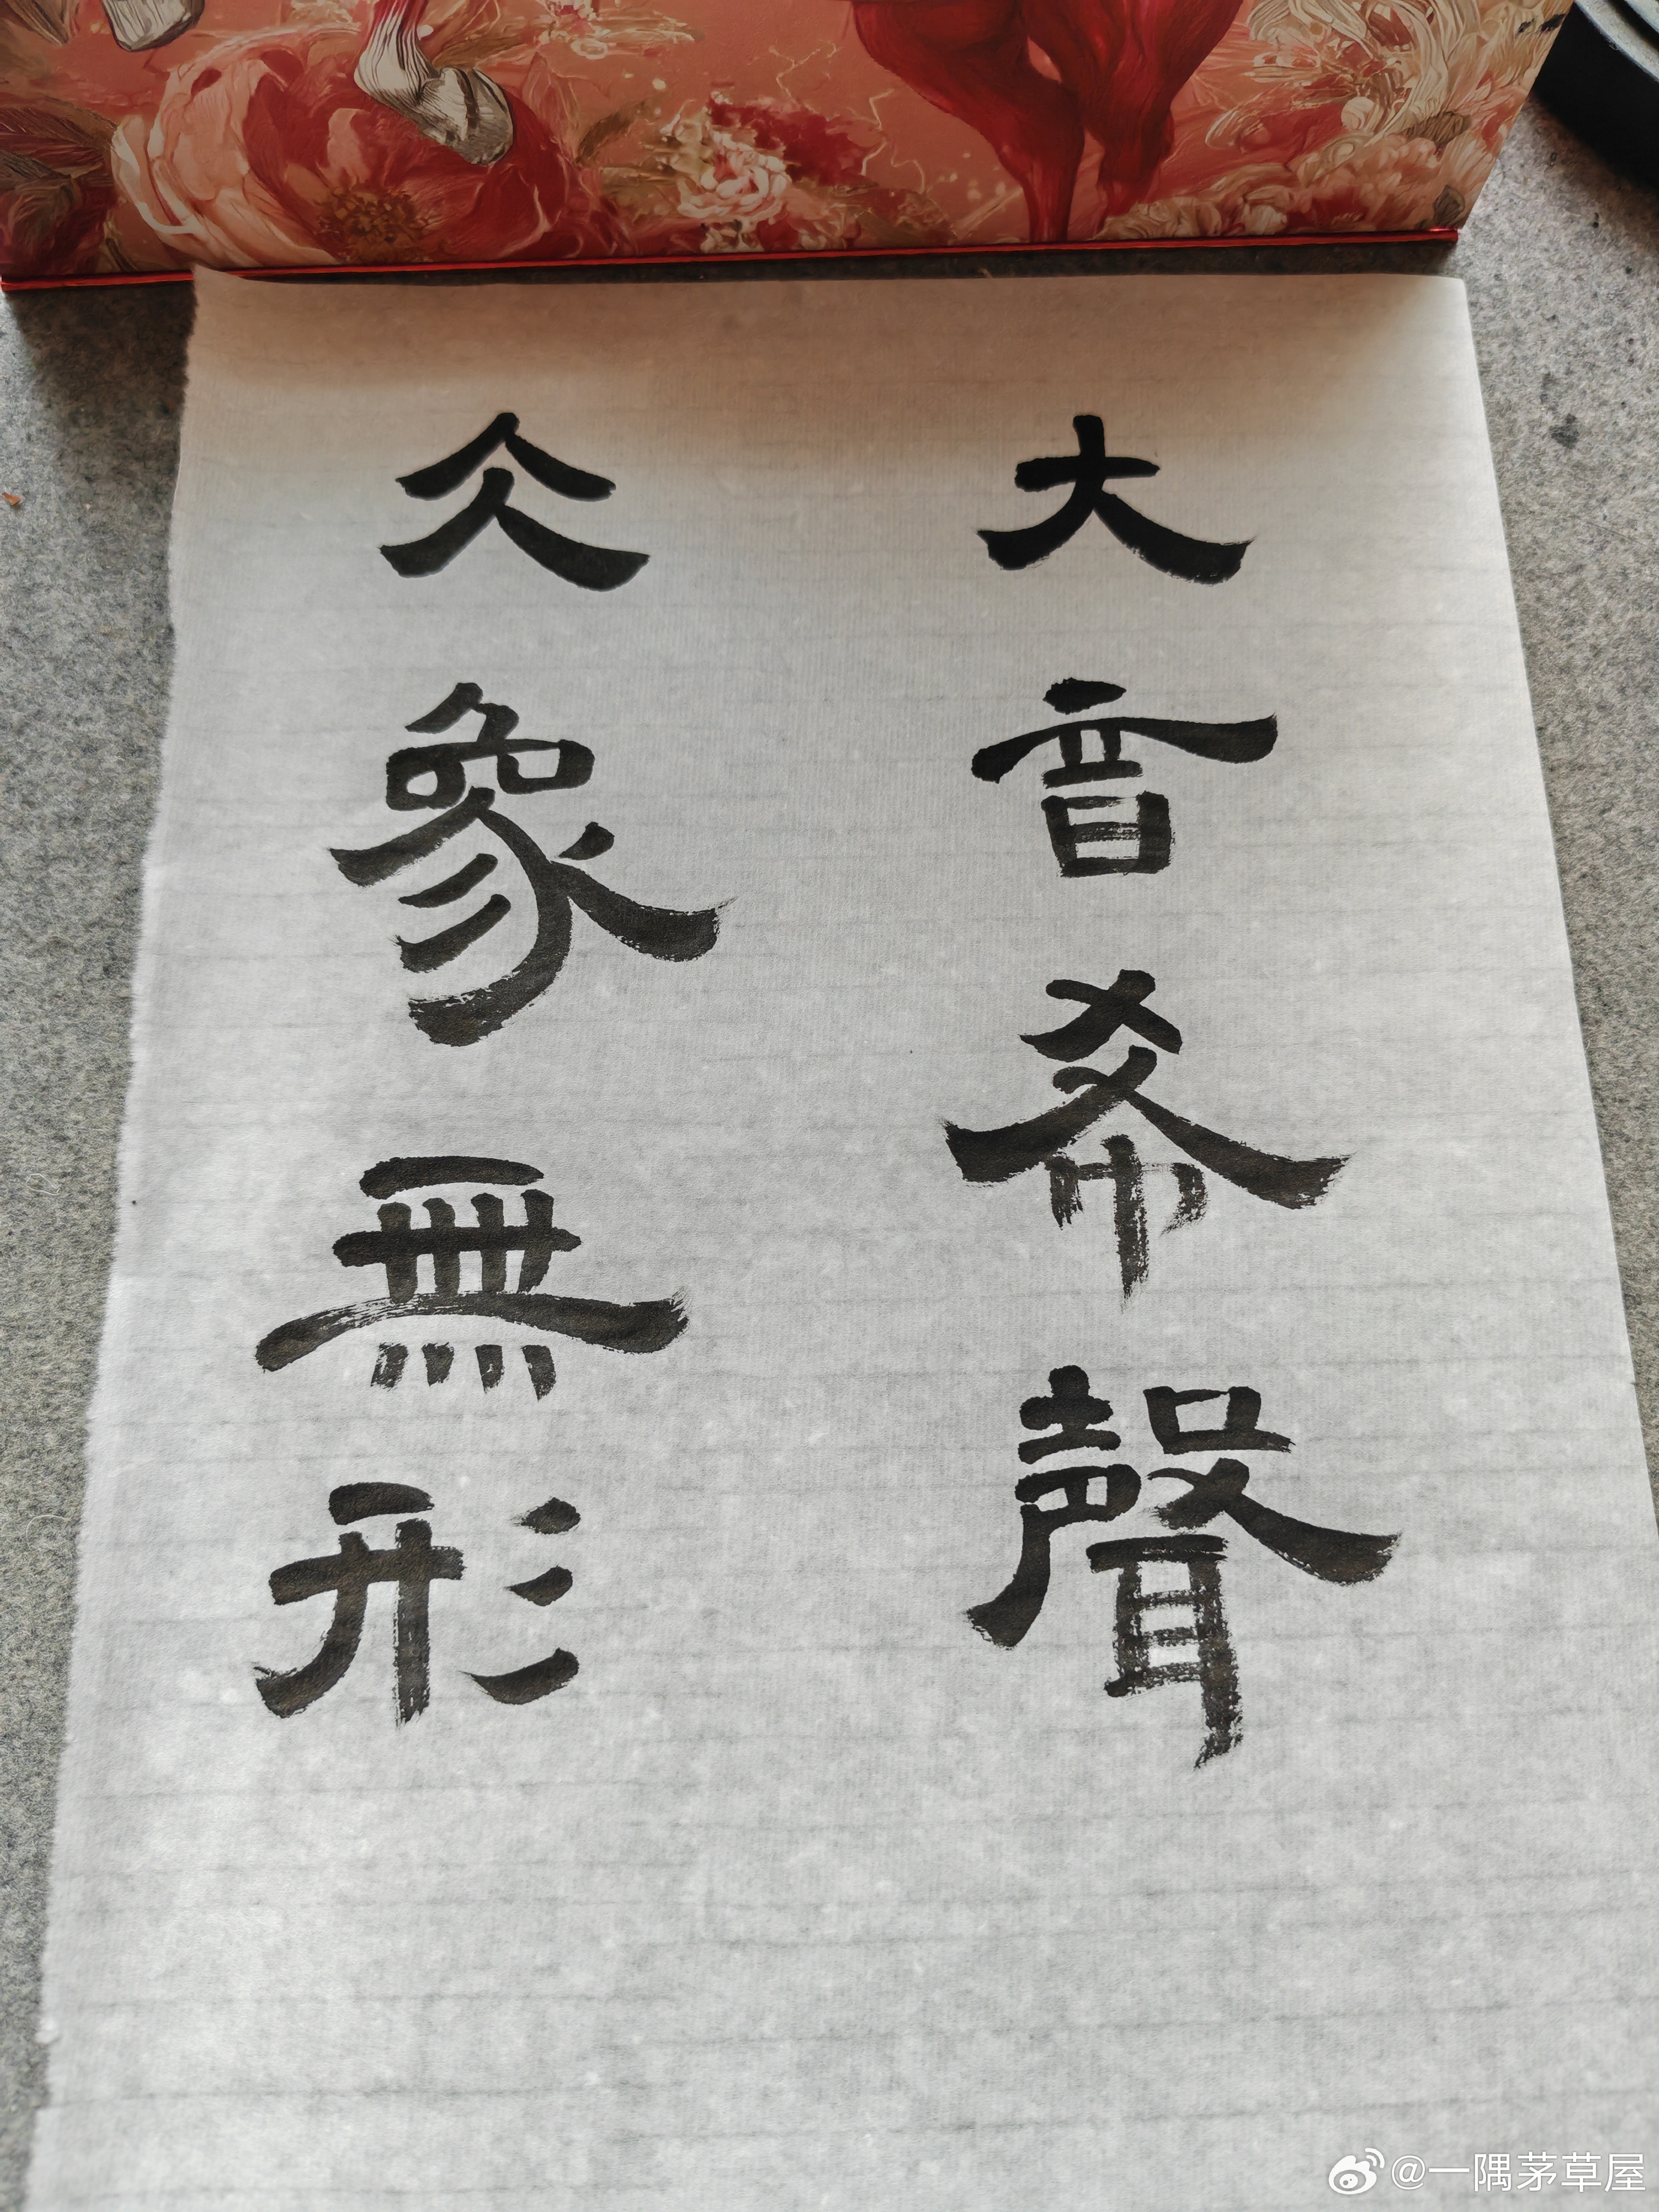 大音希聲
大象無形
@一隅茅草屋